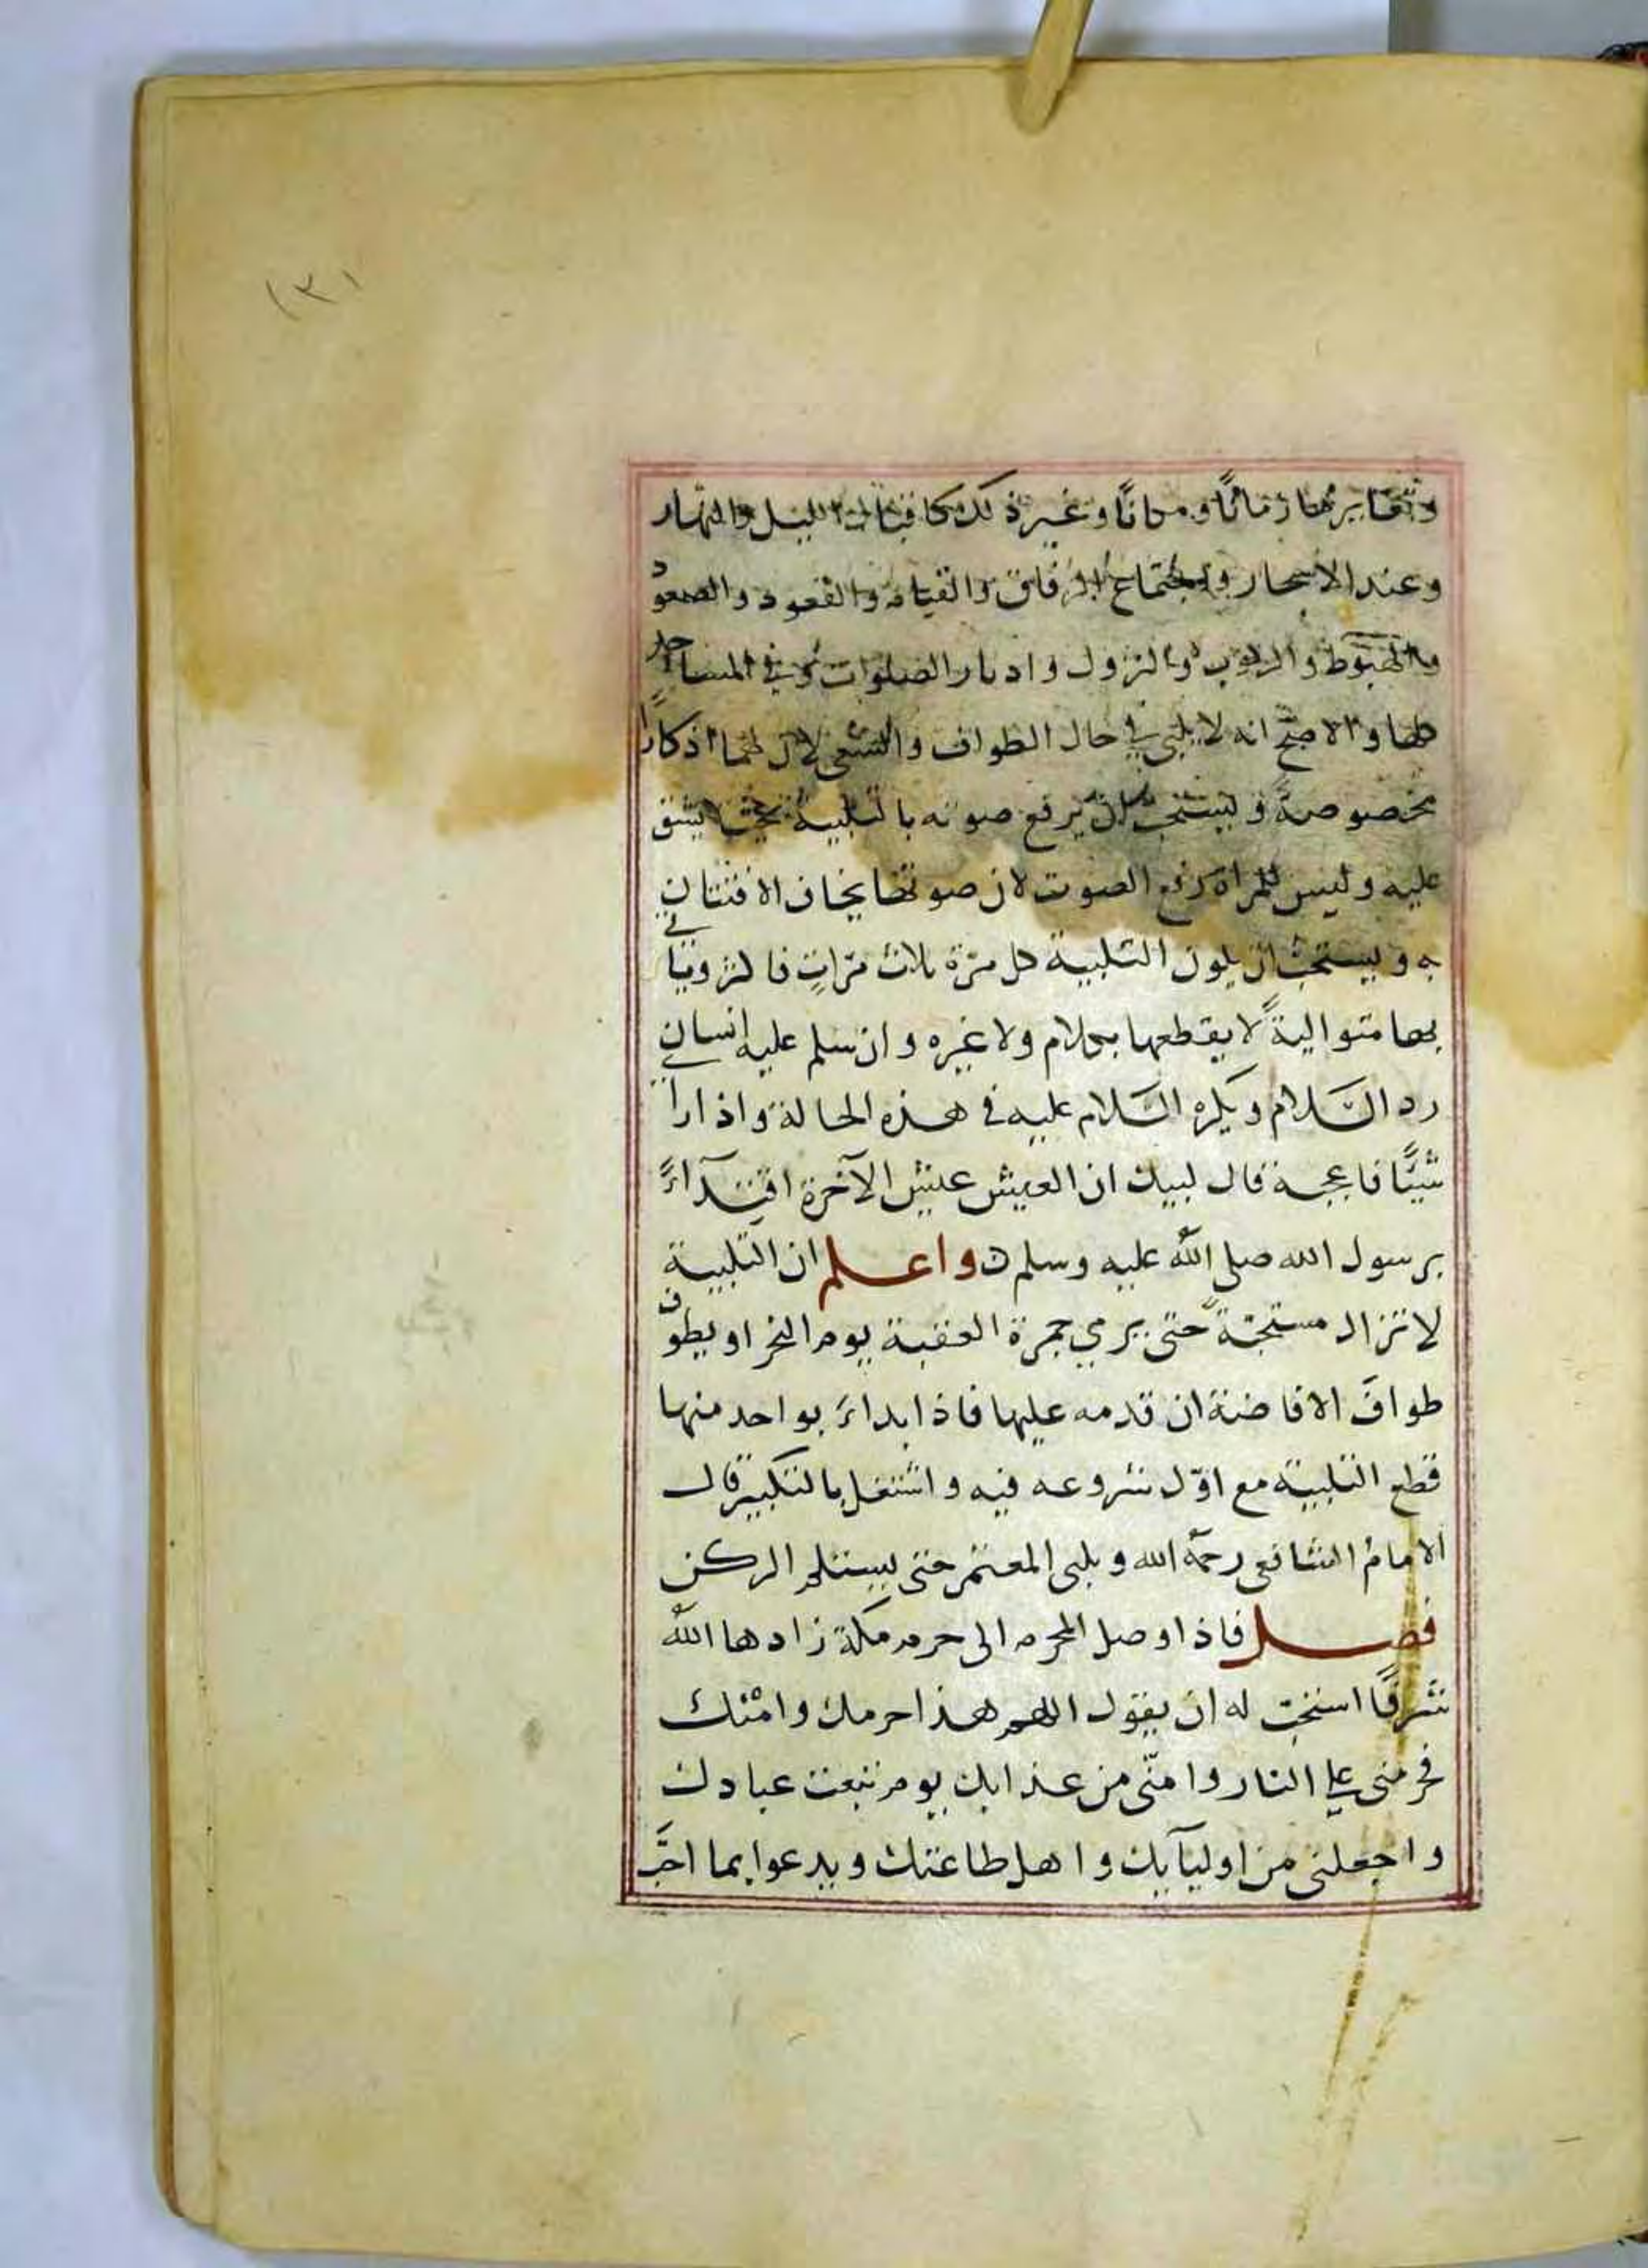 ١٣١
وتغايرها زمانًا ومكانًا وغير ذلك كاقبال الليل والنهار
وعند الاسحار واجتماع الرفاق والقيام والقعود والصعود
والهبوط والركوب والنزول وادبار الصلوات وفي المساجد
كلها والاصح انه لا يلبي في حال الطواف والسعي لان لهما اذكارًا
مخصوصة ويستحب ان يرفع صوته بالتلبية بحيث لا يشق
عليه وليس للمراة رفع الصوت لان صوتها يخاف الافتتان
به ويستحب ان يكون التلبية كل مرة ثلاث مرّاتٍ فاكثر وياتي
بها متواليةً لا يقطعها بكلام ولا غيره وان سلم عليه انسان
رد السَّلام ويكره السَّلام عليه في هذه الحالة واذا راا
شيًّا فاعجبه قال لبيك ان العيش عيش الآخرة اقتدآءً
برسول الله صلى الله عليه وسلم واعلم ان التلبية
لا تزال مستحبّة حتى يرمي جمرة العقبة يوم النحر او يطوف
طوافَ الافاضة ان قدمه عليها فاذا ابداءَ بواحد منها
قطع التلبية مع اوّل شروعه فيه واشتغل بالتكبير قال
الامام الشافعي رحمه الله ويلبى المعتمر حتى يستلم الركن
فصل فاذا وصل المحرم الى حرم مكة زادها الله
شرفًا استحبّ له ان يقول اللهم هذا حرمك وامْنك
فحرمنى على النار وامنّي من عذابك يوم تبعث عبادك
واجعلنى من اوليآيك واهل طاعتك ويدعوا بما احَبَّ